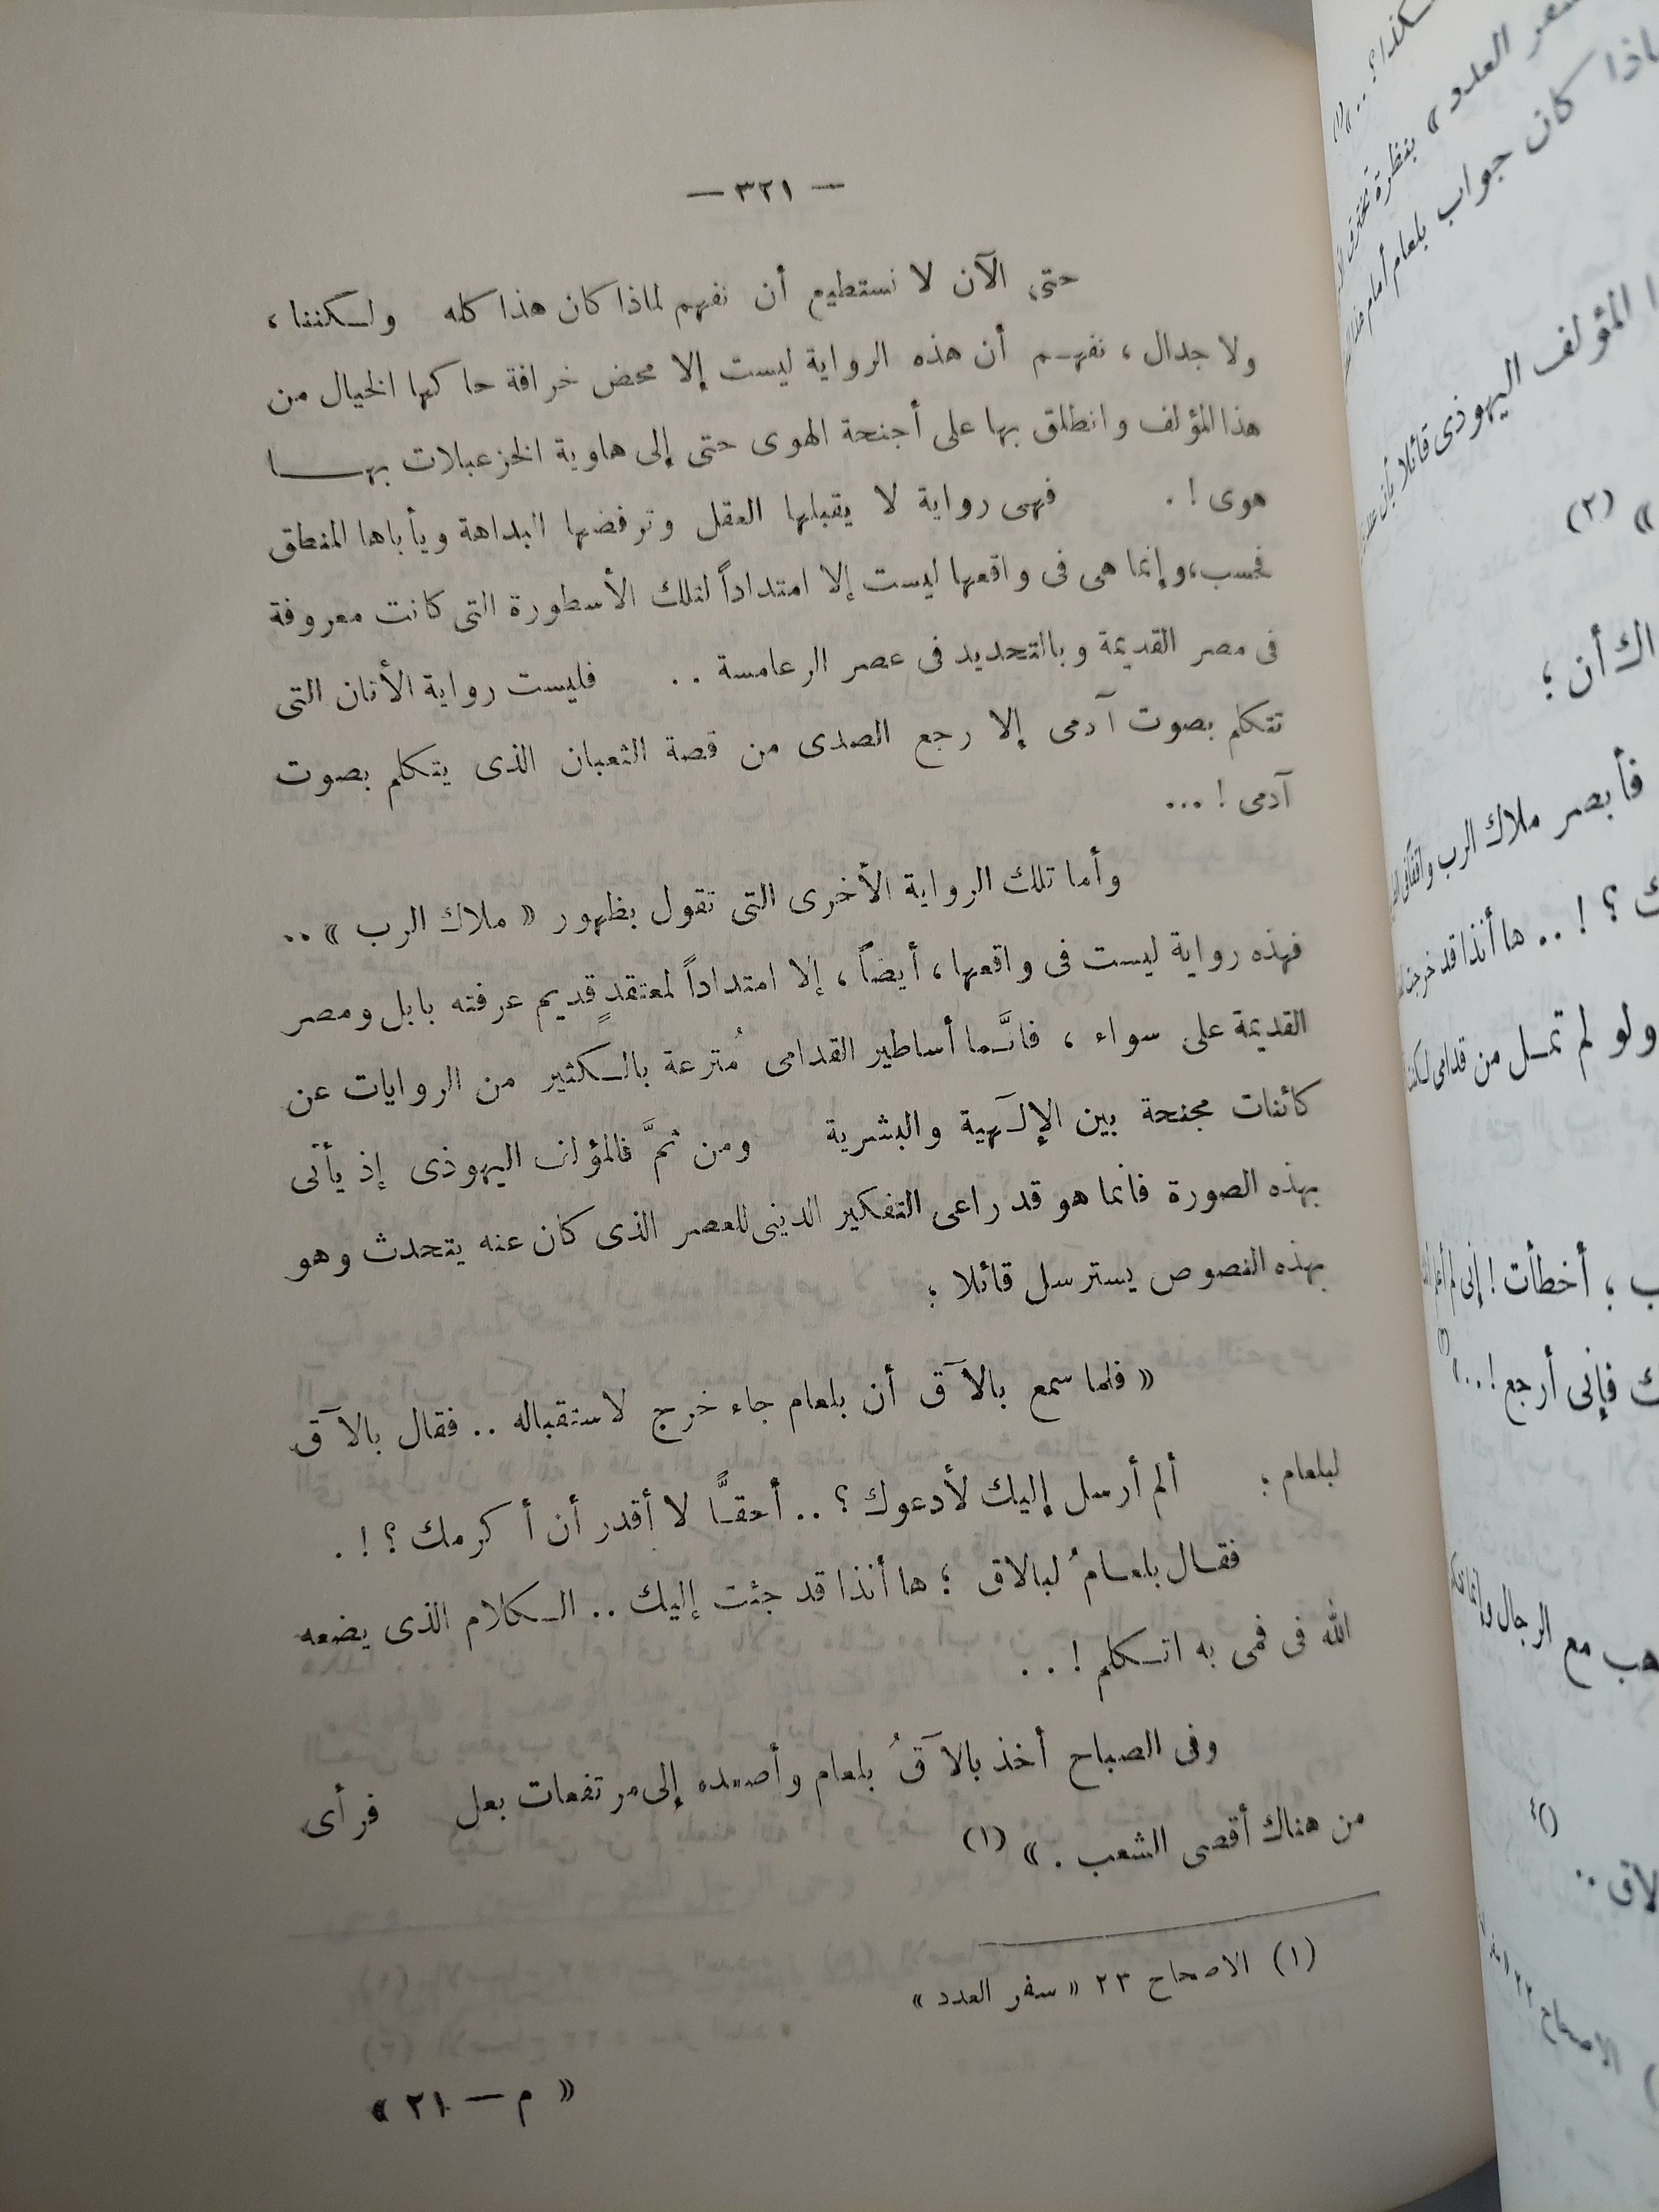 — ٣٢١ —
حتى الآن لا نستطيع أن نفهم لماذا كان هذا كله ولكننا ،
ولا جدال ، نفهم أن هذه الرواية ليست إلا محض خرافة حاكها الخيال من
هذا المؤلف وانطلق بها على أجنحة الهوى حتى إلى هاوية الخزعبلات بها
هوى ! . فهى رواية لا يقبلها العقل وترفضها البداهة ويأباها المنطق
فحسب، وإنما هى فى واقعها ليست إلا امتداداً لتلك الأسطورة التى كانت معروفة
فى مصر القديمة وبالتحديد فى عصر الرعامسة . . فليست رواية الأتان التى
تتكلم بصوت آدمى إلا رجع الصدى من قصة الثعبان الذى يتكلم بصوت
آدمى ! ...
وأما تلك الرواية الأخرى التى تقول بظهور « ملاك الرب » ..
فهذه رواية ليست فى واقعها ، أيضاً ، إلا امتداداً لمعتقدٍ قديم عرفته بابل ومصر
القديمة على سواء ، فانَّما أساطير القدامى مُترعة بالكثير من الروايات عن
كائنات مجنحة بين الإلٓهية والبشرية ومن ثمَّ فالمؤلف اليهوذى إذ يأتى
بهذه الصورة فانما هو قد راعى التفكير الدينى للعصر الذى كان عنه يتحدث وهو
بهذه النصوص يسترسل قائلا :
« فلما سمع بالآق أن بلعام جاء خرج لاستقباله .. فقال بالآق
لبلعام : ألم أرسل إليك لأدعوك ؟ .. أحقـًّا لا أقدر أن أكرمك ؟ ! .
فقال بلعامُ لبالاق : ها أنذا قد جئت إليك .. الكلام الذى يضعه
الله فى فمى به اتكلم ! . .
وفى الصباح أخذ بالآقُ بلعام وأصعده إلى مرتفعات بعل فرأى
من هناك أقصى الشعب . » (١)
(١) الاصحاح ٢٣ « سفر العدد »
« م — ٢١ »
العدد » بنظرة
كان جواب بلعام أمام
المؤلف اليهوذى قائلا بأن
» (٢)
أن :
فأبصر ملاك الرب واقفا فى
؟ ! .. ها أنذا قد خرجت
ولو لم تمل من قدامى
أخطأت ! إنى لم
فإنى أرجع ! .. » (٣)
مع الرجال وإنما
الاصحاح ٢٢